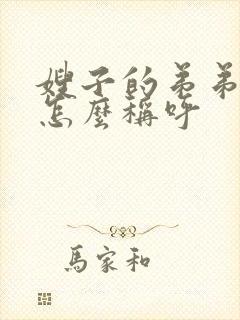 嫂子的弟弟
怎麼稱呼
馬家和